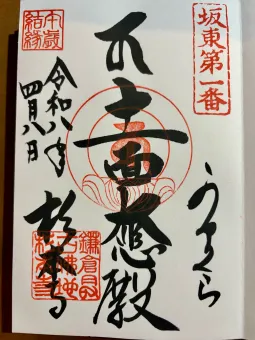 坂東第一番
かまくら
十一面大悲殿
午歳
結縁
令和八年
四月八日
杉本寺
鎌倉最
古佛地
杉本寺